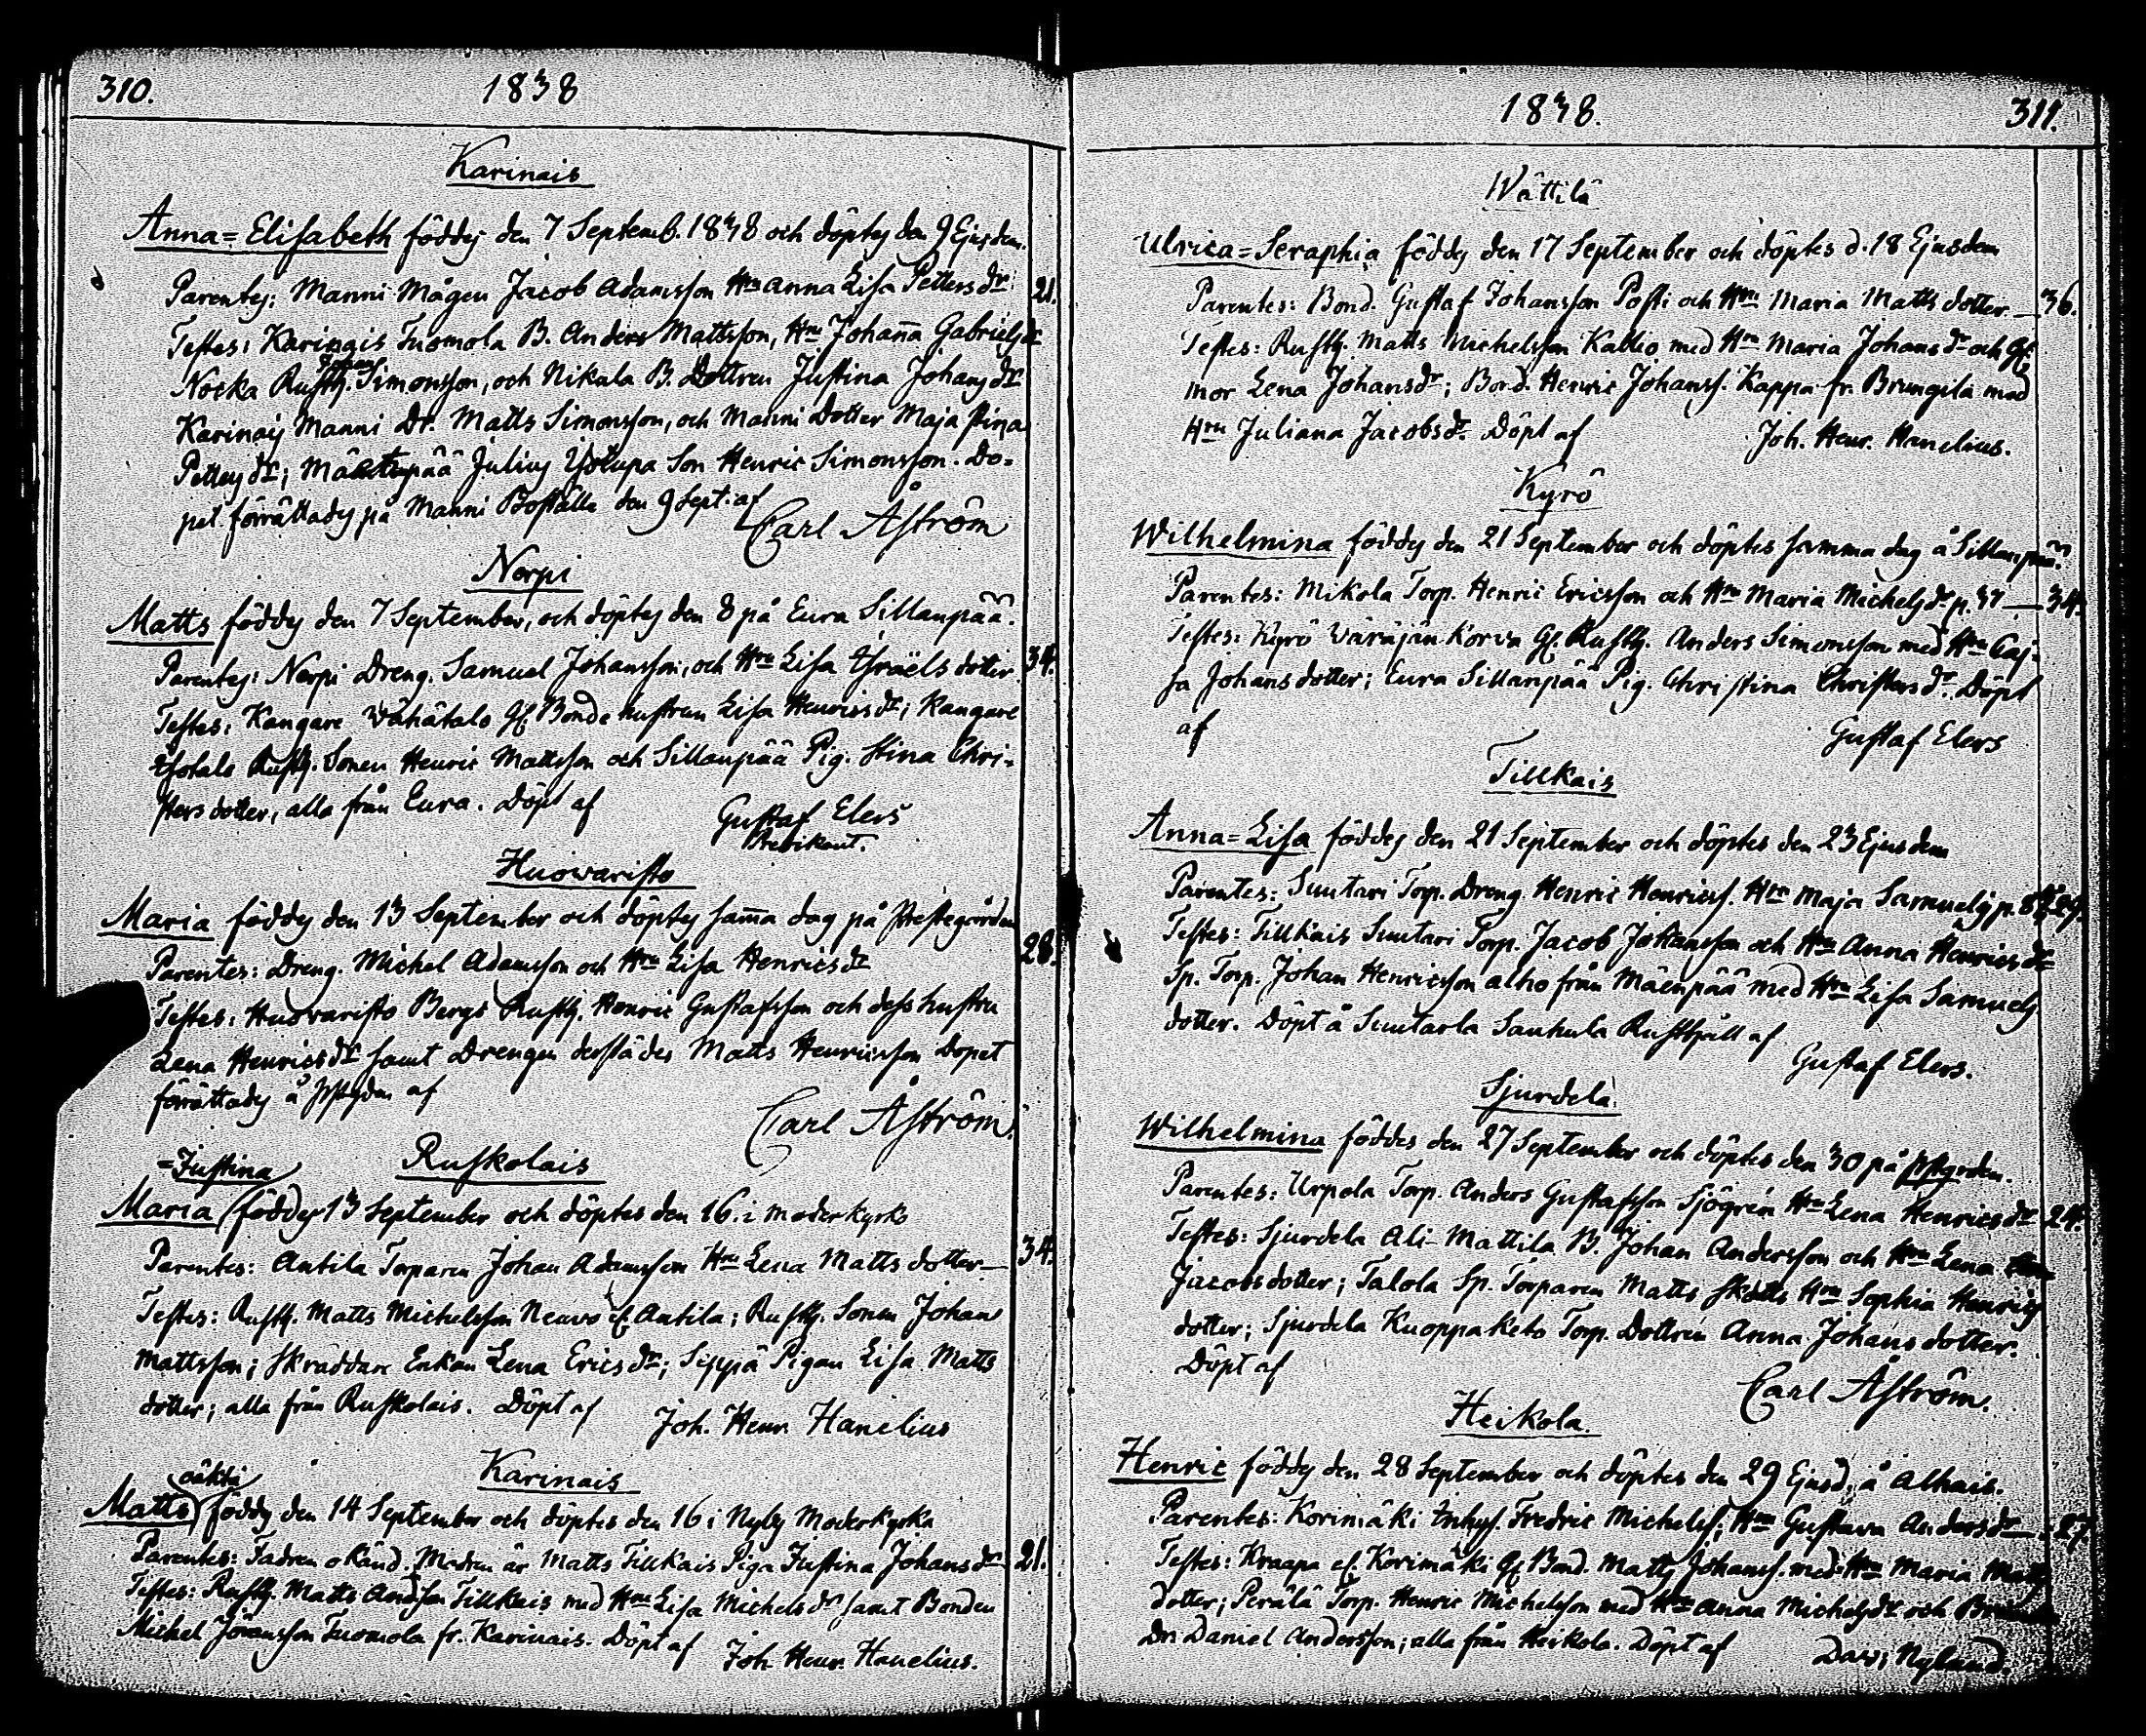 310.
1838
Karinais
Anna=Elisabeth föddes den 7 Septemb. 1838 och döptes den 9 Ejusdem.
Parentes: Manni Mågen Jacob Adamsson Hru Anna Lisa Petters dr: 21.
Testes: Karinais Tuomola B. Anders Mattsson, Hru Johanna Gabriels dr
Nocka Rusth. Johan Simonsson, och Nikala B. Dottren Justina Johans dr
Karinais Manni Dr. Matts Simonsson, och Manni Dotter Maja Stina
Petters dr; Mäenpää Julius Son Henric Simonsson. Do=
pet förrättades på Manni Boställe den 9 Sept. af
Carl Åström
Norpi
Matts föddes den 7 September, och döptes den 8 på Eura Sillanpää.
Parentes: Norpi Dreng. Samuel Johansson, och Hru Lisa Israëls dotter 34.
Testes: Kangare Wähätalo Gl. Bonde hustrun Lisa Henrics dr; Kangare
Isotalo Rusth. Sonen Henric Mattsson och Sillanpää Pig. Stina Chri-
sters dotter, alla från Eura. Döpt af
Gustaf Elers
Predikant.
Huovaristo
Maria föddes den 13 September och döptes samma dag på Prestegården
Parentes: Dreng. Michel Adamsson och Hru Lisa Henrics dr 28.
Testes: Huovaristo Bergs Rusth. Henric Gustafsson och dess hustru
Lena Henrics dr samt Drengen derstädes Matts Henricsson Dopet
förrättades å Prstgden af
Carl Åström.
Ruskolais
=Justina
Maria föddes 13 September och döptes den 16. i Moderkyrko
Parentes: Antila Torparen Johan Adamsson Hru Lena Matts dotter— 34.
Testes: Rusth. Matts Michelsson Neuvo el. Antila; Rusth. Sonen Johan
Mattsson; Skräddare Enkan Lena Erics dr; Seppä Pigan Lisa Matts
dotter; alla från Ruskolais. Döpt af
Joh. Henr. Hanelius
Karinais
oäkta
Matts föddes den 14 September och döptes den 16 i Nyby Moderkyrka
Parentes: Fadren okänd. Modren är Matts Tillkais Piga Justina Johans dr 21.
Testes: Rusth. Matts Andsson Tillkais med Hru Lisa Michels dr samt Bonden
Michel Jöransson Tuomola fr. Karinais. Döpt af
Joh. Henr. Hanelius.
1838.
311.
Wättilä
Ulrica=Seraphia föddes den 17 September och döptes d. 18 Ejusdem
Parentes: Bond. Gustaf Johansson Posti och Hru Maria Matts dotter.— 36.
Testes: Rusth. Matts Michelsson Kallio med Hru Maria Johans dr och Gl.
mor Lena Johans dr; Bond. Henric Johanss. Kappa fr. Brungila med
Hru Juliana Jacobs dr. Döpt af
Joh. Henr. Hanelius.
Kyrö
Wilhelmina föddes den 21 September och döptes samma dag å Sillanpää.
Parentes: Mikola Torp. Henric Ericsson och Hru Maria Michels dr p. 37— 34.
Testes: Kyrö Väräjän Korva Gl. Rusth. Anders Simonsson med Hru Caj-
sa Johans dotter; Eura Sillanpää Pig. Christina Christers dr. Döpt
af
Gustaf Elers
Tillkais
Anna=Lisa föddes den 21 September och döptes den 23 Ejusdem
Parentes: Suutari Torp. Dreng Henric Henricss. Hru Maja Samuels
Testes: Tillkais Suutari Torp. Jacob Johansson och Hru Anna Henrics dr
Sp. Torp. Johan Henricsson Alho från Mäenpää med Hru Lisa Samuels
dotter. Döpt å Suutarla Sauhula Rusthåll af
Gustaf Elers.
Sjurdela
Wilhelmina föddes den 27 September och döptes den 30 på Prstgården.
Parentes: Urpola Torp. Anders Gustafsson Sjögrén Hru Lena Henrics dr 24.
Testes: Sjurdela Ali-Mattila B. Johan Andersson och Hru Lena
Jacobs dotter; Talola Sp. Torparen Matts Skotts Hru Sophia Henrics
dotter; Sjurdela Kuoppaketo Torp. Dottren Anna Johans dotter.
Döpt af
Carl Åström.
Heikola.
Henric föddes den 28 September och döptes den 29 Ejusd. å Alhais.
Parentes: Korimäki Inhys. Fredric Michelss. Hru Gustava Anders dr— 27
Testes: Kraapa el. Korimäki Gl. Bond. Matts Johanss. med Hru Maria Matts
dotter; Perälä Torp. Henric Michelsson med Hru Anna Michels dr och
Dr. Daniel Andersson; alla från Heikola. Döpt af
Dav: Nylund.